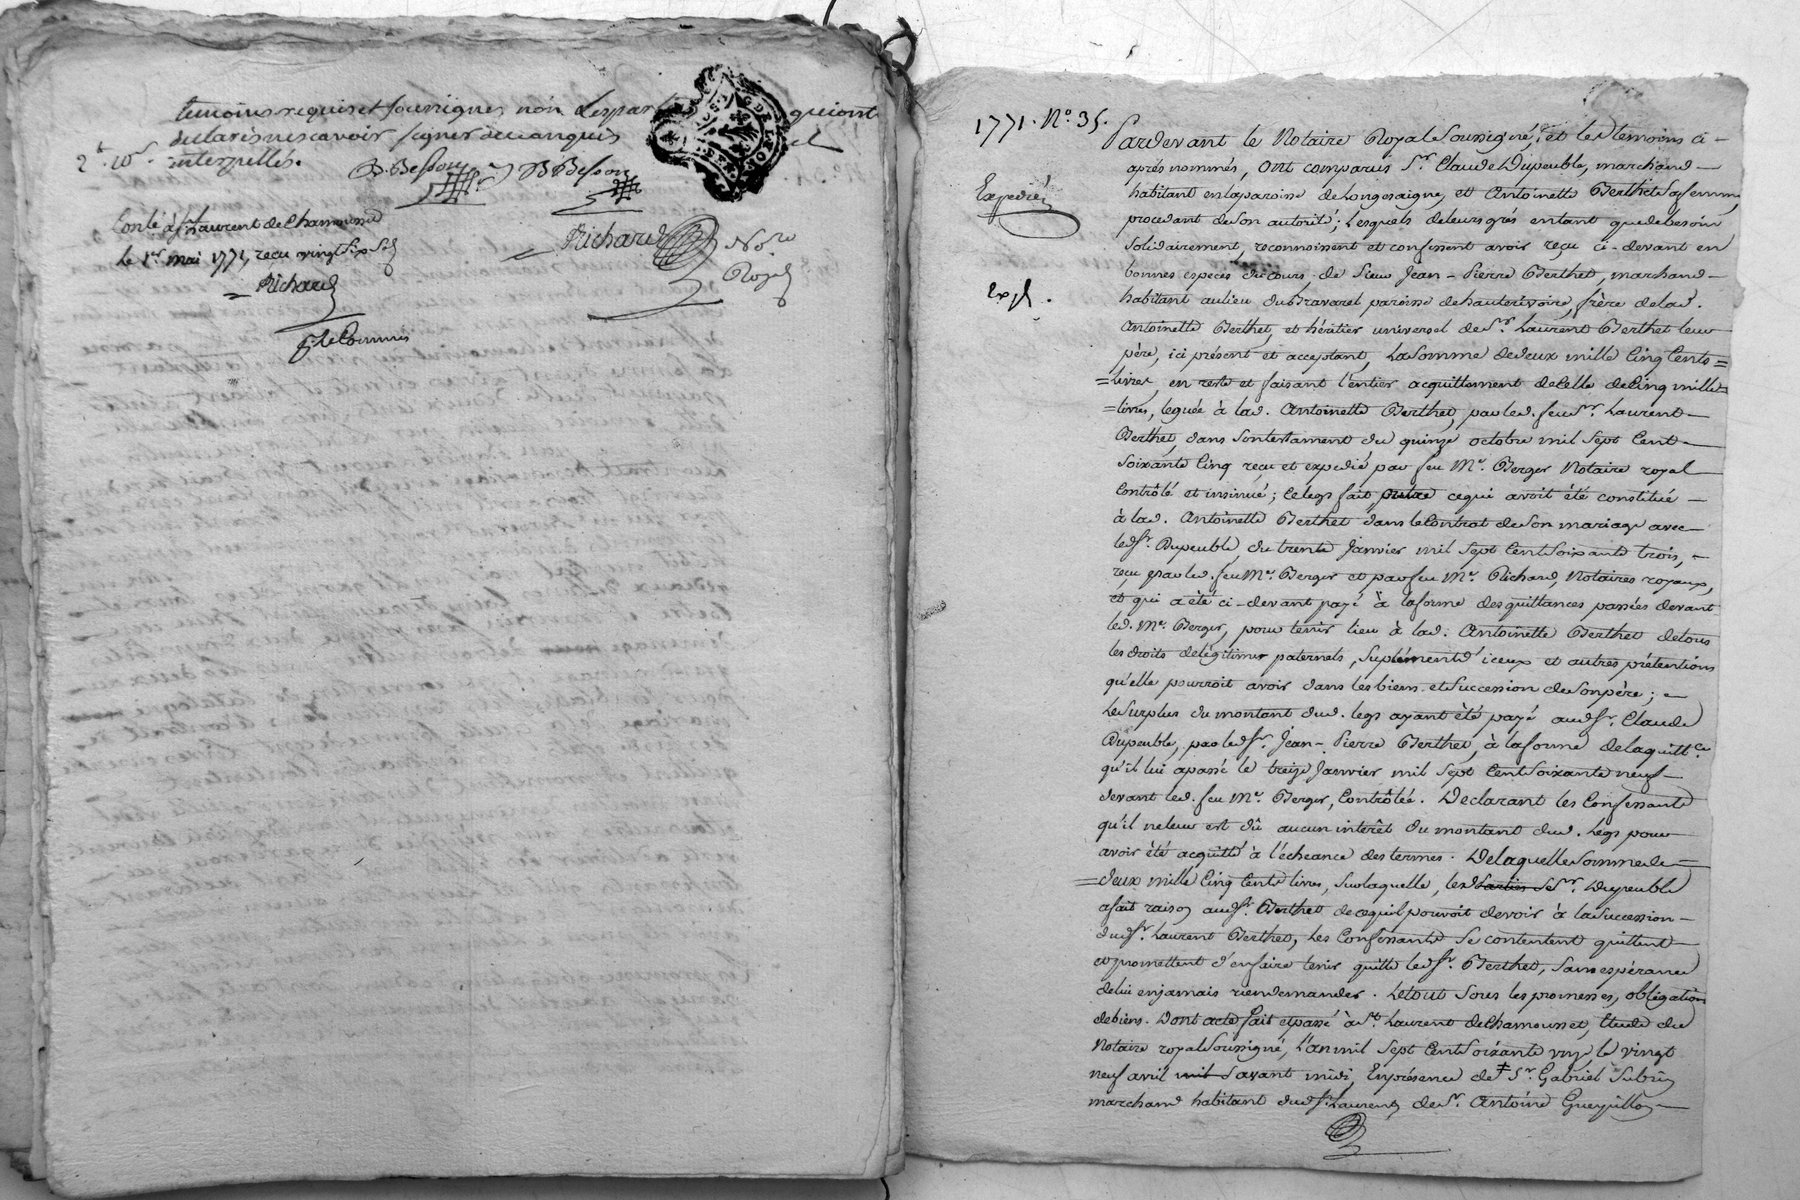 temoins requis et soussignés, non les parties qui ont
declarés ne scavoir signer de ce enquis et
interpellés.
2t. 10s.
B. Besson B Besson
Conlé à St Laurent de Chamousset
le 1er mai 1771, reçu vingt six s.
Richard
Richard Nore
Royal
1771. No. 35.
Expediée
Pardevant le Notaire Royal Soussigné, et les temoins ci-
aprés nommés, ont comparus Sr. Claude Dupeuble, marchand
habitant en la paroisse de Longesaigne, et Antoinette Berthet sa femme,
procedant de Son autorité; Lesquels de leurs grés en tant que de besoin
Solidairement, reconnoissent et confessent avoir reçu ci-devant en
bonnes especes du cours, de Sieur Jean-Pierre Berthet, marchand
habitant au lieu du Bravaret paroisse de hauterivoire, frère de lad.
Antoinette Berthet, et héritier universel de Sr. Laurent Berthet leur
père, ici présent et acceptant, La Somme de deux mille Cinq Cents =
= Livres, en reste et faisant l'entier acquittement de Celle de Cinq mille
= livres, leguée à lad. Antoinette Berthet, par led. feu Sr. Laurent
Berthet, dans Son testament du quinze octobre mil Sept Cent
Soixante Cinq reçu et expedié par feu Me. Berger Notaire royal
Contrôlé et insinué; Ce legs fait outre ce qui avoit été constitué
à lad. Antoinette Berthet dans le Contrat de Son mariage avec
led. Sr. Dupeuble, du trente Janvier mil Sept Cent Soixante trois,
reçu par led. feu Me. Berger et par feu Me. Richard, Notaires royaux,
et qui a été ci-devant payé à la forme des quittances passées devant
led. Me. Berger, pour tenir lieu à lad. Antoinette Berthet de tous
les droits de légitimes paternels, Suplément d'iceux et autres prétentions
qu'elle pourroit avoir dans les biens et Succession de Son père;
Le Surplus du montant dud. legs ayant été payé aud. Sr. Claude
Dupeuble, par led. Sr. Jean-Pierre Berthet, à la forme de la quittce.
qu'il lui a passé le treize Janvier mil Sept Cent Soixante neuf
devant led. feu Me. Berger, Contrôlée. Declarant les Confessants
qu'il ne leur est dû aucun intérêt du montant dud. Legs pour
avoir été acquitté à l'écheance des termes. De laquelle Somme de =
= deux mille Cinq Cents livres, Sur laquelle, led. Sr. Dupeuble
a fait raison aud. Sr. Berthet de ce qu'il pouvoit devoir à la Succession
dud. Sr. Laurent Berthet, Les Confessants Se contentent quittent
et promettent d'en faire tenir quitte led. Sr. Berthet, Sans espérance
de lui en jamais rien demander. Le tout Sous les promesses, obligation
de biens. Dont acte fait et passé à St. Laurent de Chamousset, Etude du
Notaire royal Soussigné, L'an mil Sept Cent Soixante onze, le vingt
neuf avril mil avant midi, En présence de Sr. Gabriel Subrin
marchand habitant dud. St. Laurent, de Sr. Antoine Gueyrillon